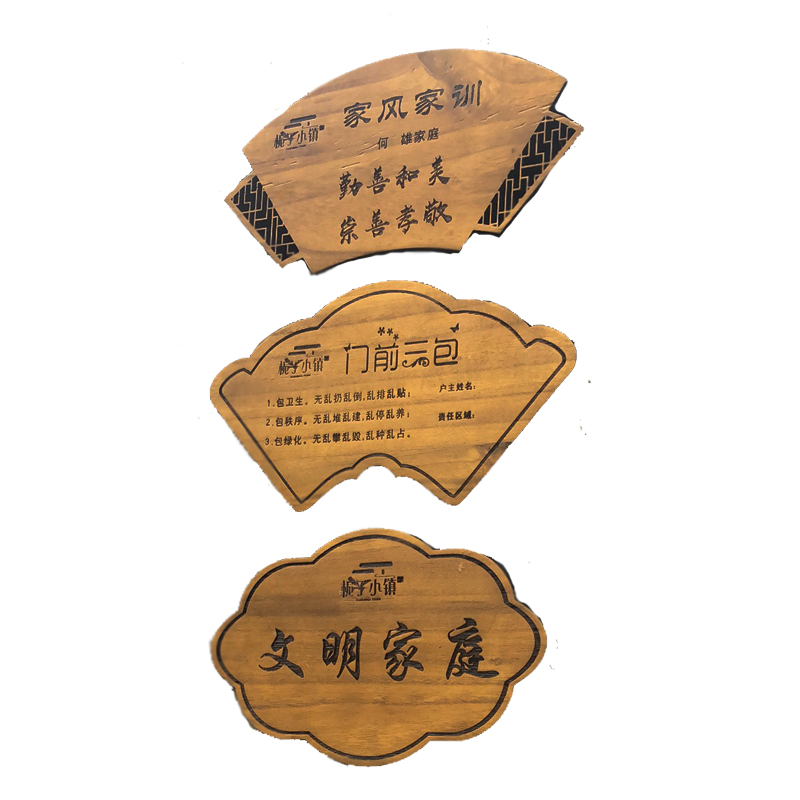 家风家训
栀子小镇
何 雄家庭
勤善和美
崇善孝敬
栀子小镇
门前三包
1.包卫生。无乱扔乱倒,乱排乱贴;
2.包秩序。无乱堆乱建,乱停乱养;
3.包绿化。无乱攀乱毁,乱种乱占。
户主姓名:
责任区域:
栀子小镇
文明家庭